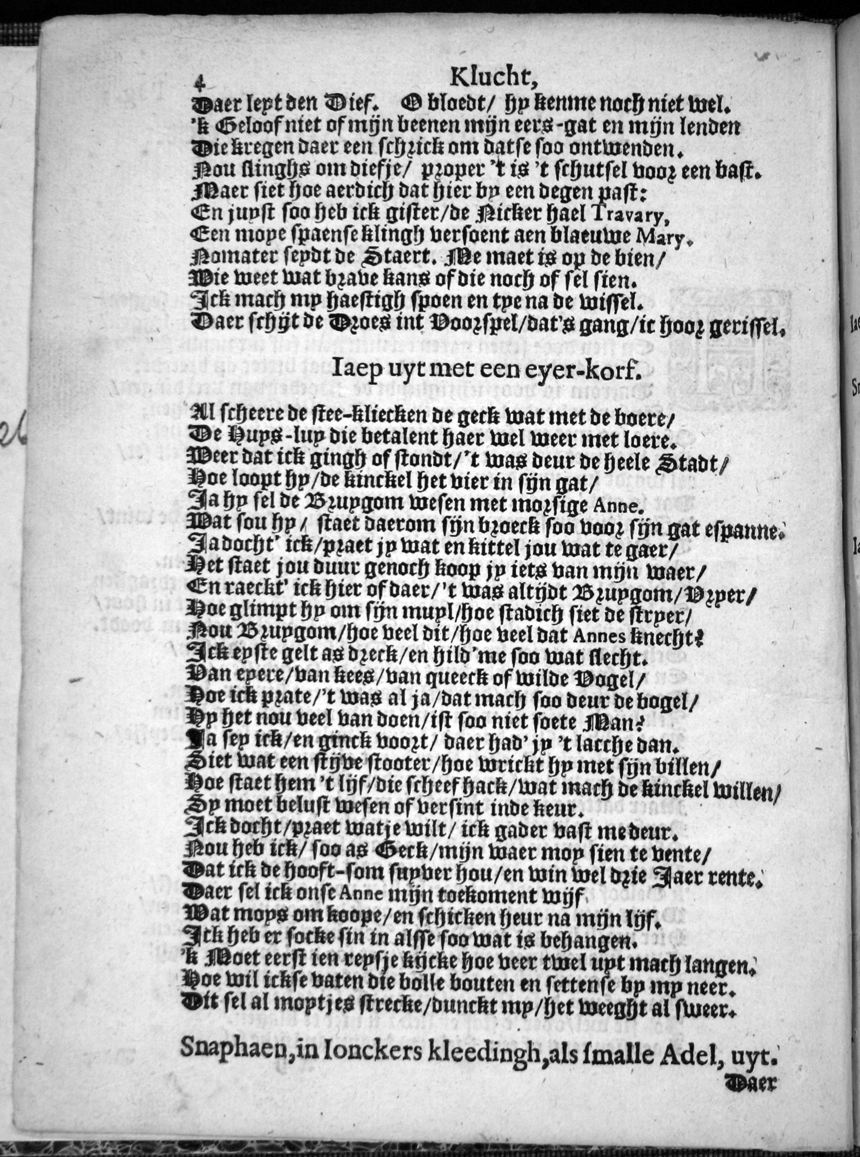 4 Klucht,
Daer leyt den Dief. O bloedt/ hy kenme noch niet wel.
'k Geloof niet of mijn beenen mijn eers-gat en mijn lenden
Die kregen daer een schrick om datse soo ontwenden.
Nou slinghs om diefje/ proper 't is 't schutsel voor een bast.
Maer siet hoe aerdich dat hier by een degen past:
En juyst soo heb ick gister/de Nicker hael Travary,
Een moye spaense klingh versoent aen blaeuwe Mary.
Nomater seydt de Staert. Me maet is op de bien/
Wie weet wat brave kans of die noch of sel sien.
Ick mach my haestigh spoen en tye na de wissel.
Daer schijt de Droes int Voorspel/dat's gang/ic hoor gerissel.
Iaep uyt met een eyer-korf.
Al scheere de stee-kliecken de geck wat met de boere/
De Huys-luy die betalent haer wel weer met loere.
Weer dat ick gingh of stondt/'t was deur de heele Stadt/
Hoe loopt hy/de kinckel het vier in sijn gat/
Ja hy sel de Bruygom wesen met morsige Anne.
Wat sou hy/ staet daerom sijn broeck soo voor sijn gat espanne.
Ja docht' ick/praet jy wat en kittel jou wat te gaer/
Het staet jou duur genoch koop jy iets van mijn waer/
En raeckt' ick hier of daer/'t was altijdt Bruygom/Vryer/
Hoe glimpt hy om sijn muyl/hoe stadich siet de stryer/
Nou Bruygom/hoe veel dit/hoe veel dat Annes knecht?
Ick eyste gelt as dreck/en hild'me soo wat slecht.
Van eyere/van kees/van queeck of wilde Vogel/
Hoe ick prate/'t was al ja/dat mach soo deur de bogel/
Hy het nou veel van doen/ist soo niet soete Man?
Ja sey ick/en ginck voort/ daer had' jy 't lacche dan.
Siet wat een stijve stooter/hoe wrickt hy met sijn billen/
Hoe staet hem 't lijf/die scheef hack/wat mach de kinckel willen/
Sy moet belust wesen of versint inde keur.
Ick docht/praet watje wilt/ ick gader vast me deur.
Nou heb ick/ soo as Geck/mijn waer moy sien te vente/
Dat ick de hooft-som suyver hou/en win wel drie Jaer rente.
Daer sel ick onse Anne mijn toekoment wijf
Wat moys om koope/en schicken heur na mijn lijf.
Ick heb er socke sin in alsse soo wat is behangen.
'k Moet eerst ien reysje kijcke hoe veer twel uyt mach langen.
Hoe wil ickse vaten die bolle bouten en settense by my neer.
Dit sel al moytjes strecke/dunckt my/het weeght al sweer.
Snaphaen, in Ionckers kleedingh, als smalle Adel, uyt.
Daer